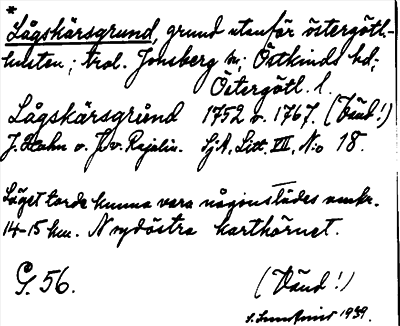 *
Lågskärsgrund, grund utanför östergötl.-
kusten; trol. Jonsberg sn; Östkinds hd;
Östergötl. l.
Lågskärsgrůnd 1752 o. 1767. (Vänd!)
J. Hahn o. J. v. Rajalin. SjA, Litt. VII, N:o 18.
Läget torde kunna vara någonstädes omkr.
14-15 km. N sydöstra karthörnet.
G. 56.
(Vänd!)
1939.